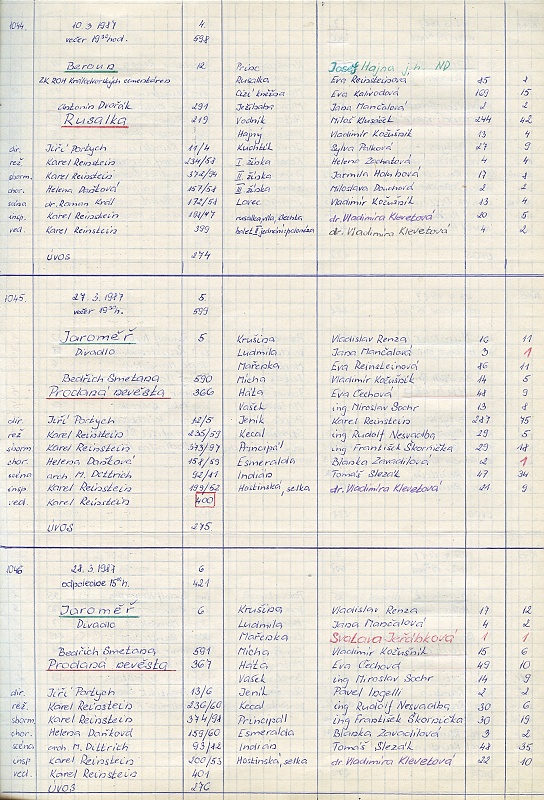 1044. 10. 3. 1987 4.
večer 19 30 hod. 598
Beroun 12 Princ Josef Hajna j. h. ND
ZK ROH Králodvorských cementáren Rusalka Eva Reinsteinová 85 2
Cizí kněžna Eva Kalivodová 169 15
Antonín Dvořák 291 Ježibaba Jana Mančalová 2 2
Rusalka 219 Vodník Miloš Klusáček 244 42
Hajný Vladimír Kožušník 13 4
dir. Jiří Portych 11/4 Kuchtík Sylva Palková 27 9
rež. Karel Reinstein 234/58 I. žínka Helena Zachatová 4 4
sborm. Karel Reinstein 372/94 II. žínka Jarmila Holubová 17 8
chor. Helena Daňková 157/58 III. žínka Miloslava Douchová 2 2
scéna dr. Roman Král 172/51 Lovec Vladimír Kožušník 13 4
insp. Karel Reinstein 198/47 dr. Vladimíra Klevetová 20 5
ved. Karel Reinstein 399 balet dr. Vladimíra Klevetová 4 2
ÚVOS 274
1045. 27. 3. 1987 5.
večer 19 30 h. 599
Jaroměř 5 Krušina Vladislav Renza 16 11
Divadlo Ludmila Jana Mančalová 3 1
Mařenka Eva Reinsteinová 86 11
Bedřich Smetana 590 Mícha Vladimír Kožušník 14 5
Prodaná nevěsta 366 Háta Eva Čechová 48 9
Vašek ing Miroslav Sochr 13 8
dir. Jiří Portych 12/5 Jeník Karel Reinstein 287 75
rež. Karel Reinstein 235/59 Kecal ing Rudolf Nesvadba 29 5
sborm Karel Reinstein 373/97 Principál ing František Škornička 29 18
chor. Helena Daňková 158/59 Esmeralda Blanka Zavadilová 2 1
scéna arch. M. Dittrich 92/81 Indián Tomáš Slezák 47 34
insp Karel Reinstein 199/52 Hostinská, selka dr. Vladimíra Klevetová 21 9
ved. Karel Reinstein 400
ÚVOS 275
1046 28. 3. 1987 6
odpoledne 15 00 h. 421
Jaroměř 6 Krušina Vladislav Renza 17 12
Divadlo Ludmila Jana Mančalová 4 2
Mařenka Svatava Jeřábková 1 1
Bedřich Smetana 591 Mícha Vladimír Kožušník 15 6
Prodaná nevěsta 367 Háta Eva Čechová 49 10
Vašek ing Miroslav Sochr 14 9
dir. Jiří Portych 13/6 Jeník Pavel Ingelli 2 2
rež. Karel Reinstein 236/60 Kecal ing Rudolf Nesvadba 30 6
sborm Karel Reinstein 374/98 Principál ing František Škornička 30 19
chor. Helena Daňková 159/60 Esmeralda Blanka Zavadilová 3 2
scéna arch. M. Dittrich 93/82 Indián Tomáš Slezák 48 35
insp Karel Reinstein 200/53 Hostinská, selka dr. Vladimíra Klevetová 22 10
ved. Karel Reinstein 401
ÚVOS 276